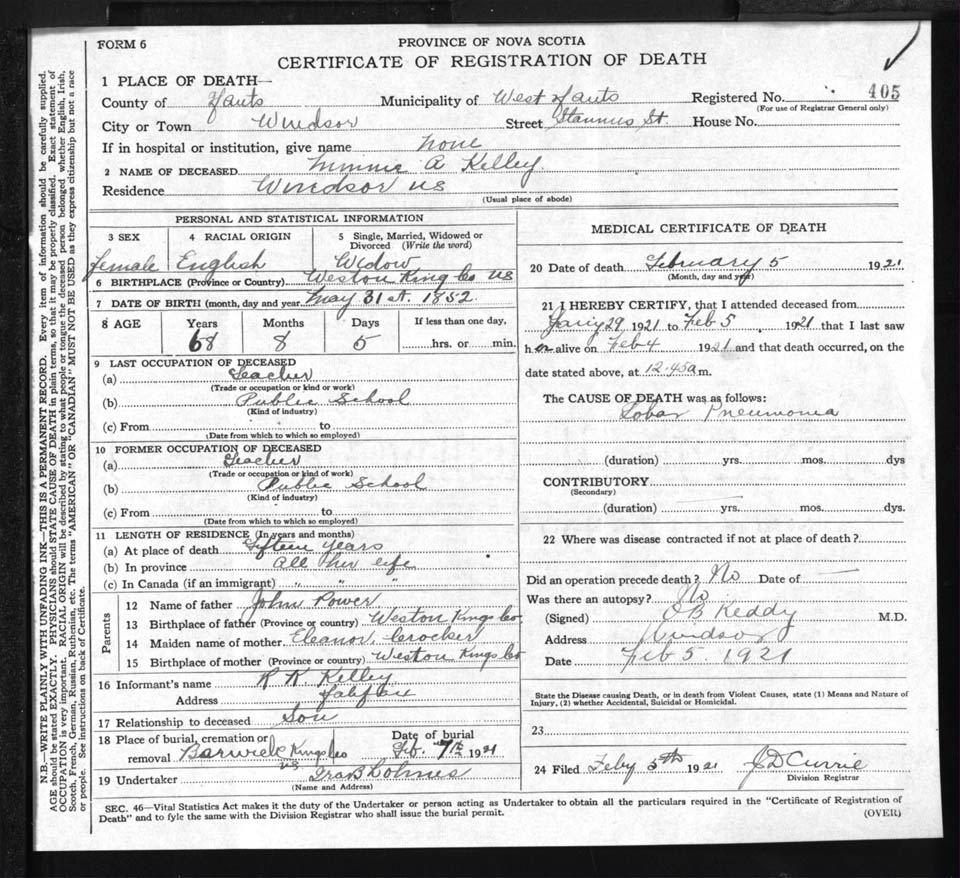 FORM 6
PROVINCE OF NOVA SCOTIA
CERTIFICATE OF REGISTRATION OF DEATH
1 PLACE OF DEATH—
County of Hants Municipality of West Hants Registered No. 405
(For use of Registrar General only)
City or Town Windsor Street Stannus St. House No.
If in hospital or institution, give name none
2 NAME OF DECEASED Minnie A Kelley
Residence Windsor NS
(Usual place of abode)
PERSONAL AND STATISTICAL INFORMATION
3 SEX 4 RACIAL ORIGIN 5 Single, Married, Widowed or
Divorced (Write the word)
female English Widow
6 BIRTHPLACE (Province or Country) Weston Kings Co NS
7 DATE OF BIRTH (month, day and year) May 31st. 1852
8 AGE Years Months Days If less than one day,
68 8 5 hrs. or min.
9 LAST OCCUPATION OF DECEASED
(a) Teacher
(Trade or occupation or kind or work)
(b) Public School
(Kind of industry)
(c) From to
(Date from which to which so employed)
10 FORMER OCCUPATION OF DECEASED
(a) Teacher
(Trade or occupation or kind of work)
(b) Public School
(Kind of industry)
(c) From to
(Date from which to which so employed)
11 LENGTH OF RESIDENCE (In years and months)
(a) At place of death Fifteen years
(b) In province all her life
(c) In Canada (if an immigrant) " " "
Parents
12 Name of father John Power
13 Birthplace of father (Province or country) Weston Kings Co
14 Maiden name of mother Eleanor Crocker
15 Birthplace of mother (Province or country) Weston Kings Co
16 Informant's name R R Kelley
Address Halifax
17 Relationship to deceased Son
18 Place of burial, cremation or Date of burial
removal Berwick Kings Co Feb. 7th 1921
NS
19 Undertaker Ira B Lohnes
(Name and Address)
MEDICAL CERTIFICATE OF DEATH
20 Date of death February 5 1921
(Month, day and year)
21 I HEREBY CERTIFY, that I attended deceased from
Jan'y 29 1921 to Feb 5, 1921 that I last saw
her alive on Feb 4 1921 and that death occurred, on the
date stated above, at 12.45 a m.
The CAUSE OF DEATH was as follows:
Lobar Pneumonia
(duration) yrs. mos. dys
CONTRIBUTORY
(Secondary)
(duration) yrs. mos. dys.
22 Where was disease contracted if not at place of death?
Did an operation precede death? No Date of —
Was there an autopsy? No
(Signed) O B Keddy M.D.
Address Windsor
Date Feb 5 1921
State the Disease causing Death, or in death from Violent Causes, state (1) Means and Nature of
Injury, (2) whether Accidental, Suicidal or Homicidal.
23
24 Filed Feby 5th 1921 J D Currie
Division Registrar
SEC. 46—Vital Statistics Act makes it the duty of the Undertaker or person acting as Undertaker to obtain all the particulars required in the "Certificate of Registration of
Death" and to fyle the same with the Division Registrar who shall issue the burial permit. (OVER)
N.B.—WRITE PLAINLY WITH UNFADING INK—THIS IS A PERMANENT RECORD. Every item of information should be carefully supplied.
AGE should be stated EXACTLY. PHYSICIANS should STATE CAUSE OF DEATH in plain terms, so that it may be properly classified. Exact statement of
OCCUPATION is very important. RACIAL ORIGIN will be described by stating to what people or tongue the deceased person belonged whether English, Irish,
Scotch, French, German, Russian, Ruthenian, etc. The terms "AMERICAN" OR "CANADIAN" MUST NOT BE USED as they express citizenship but not a race
or people. See instructions on back of Certificate.